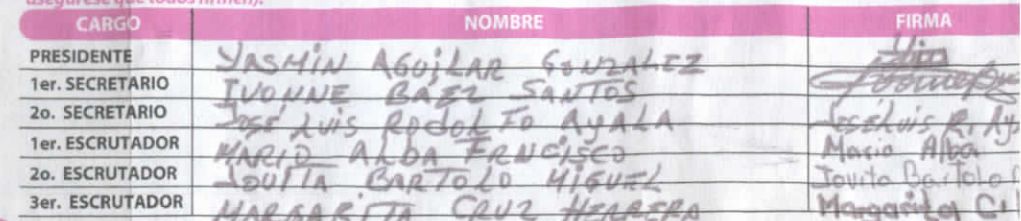 asegúrese que todos firmen).
CARGO NOMBRE FIRMA
PRESIDENTE YASMIN AGUILAR GONZALEZ
1er. SECRETARIO IVONNE BAEZ SANTOS
2o. SECRETARIO José Luis RODOLFO AYALA José Luis R. Ay
1er. ESCRUTADOR MARIO ALBA FRNCISCO Mario Alba
2o. ESCRUTADOR JOVITA BARTOLO MIGUEL Jovita Bartolo
3er. ESCRUTADOR MARGARITA CRUZ HERRERA Margarita